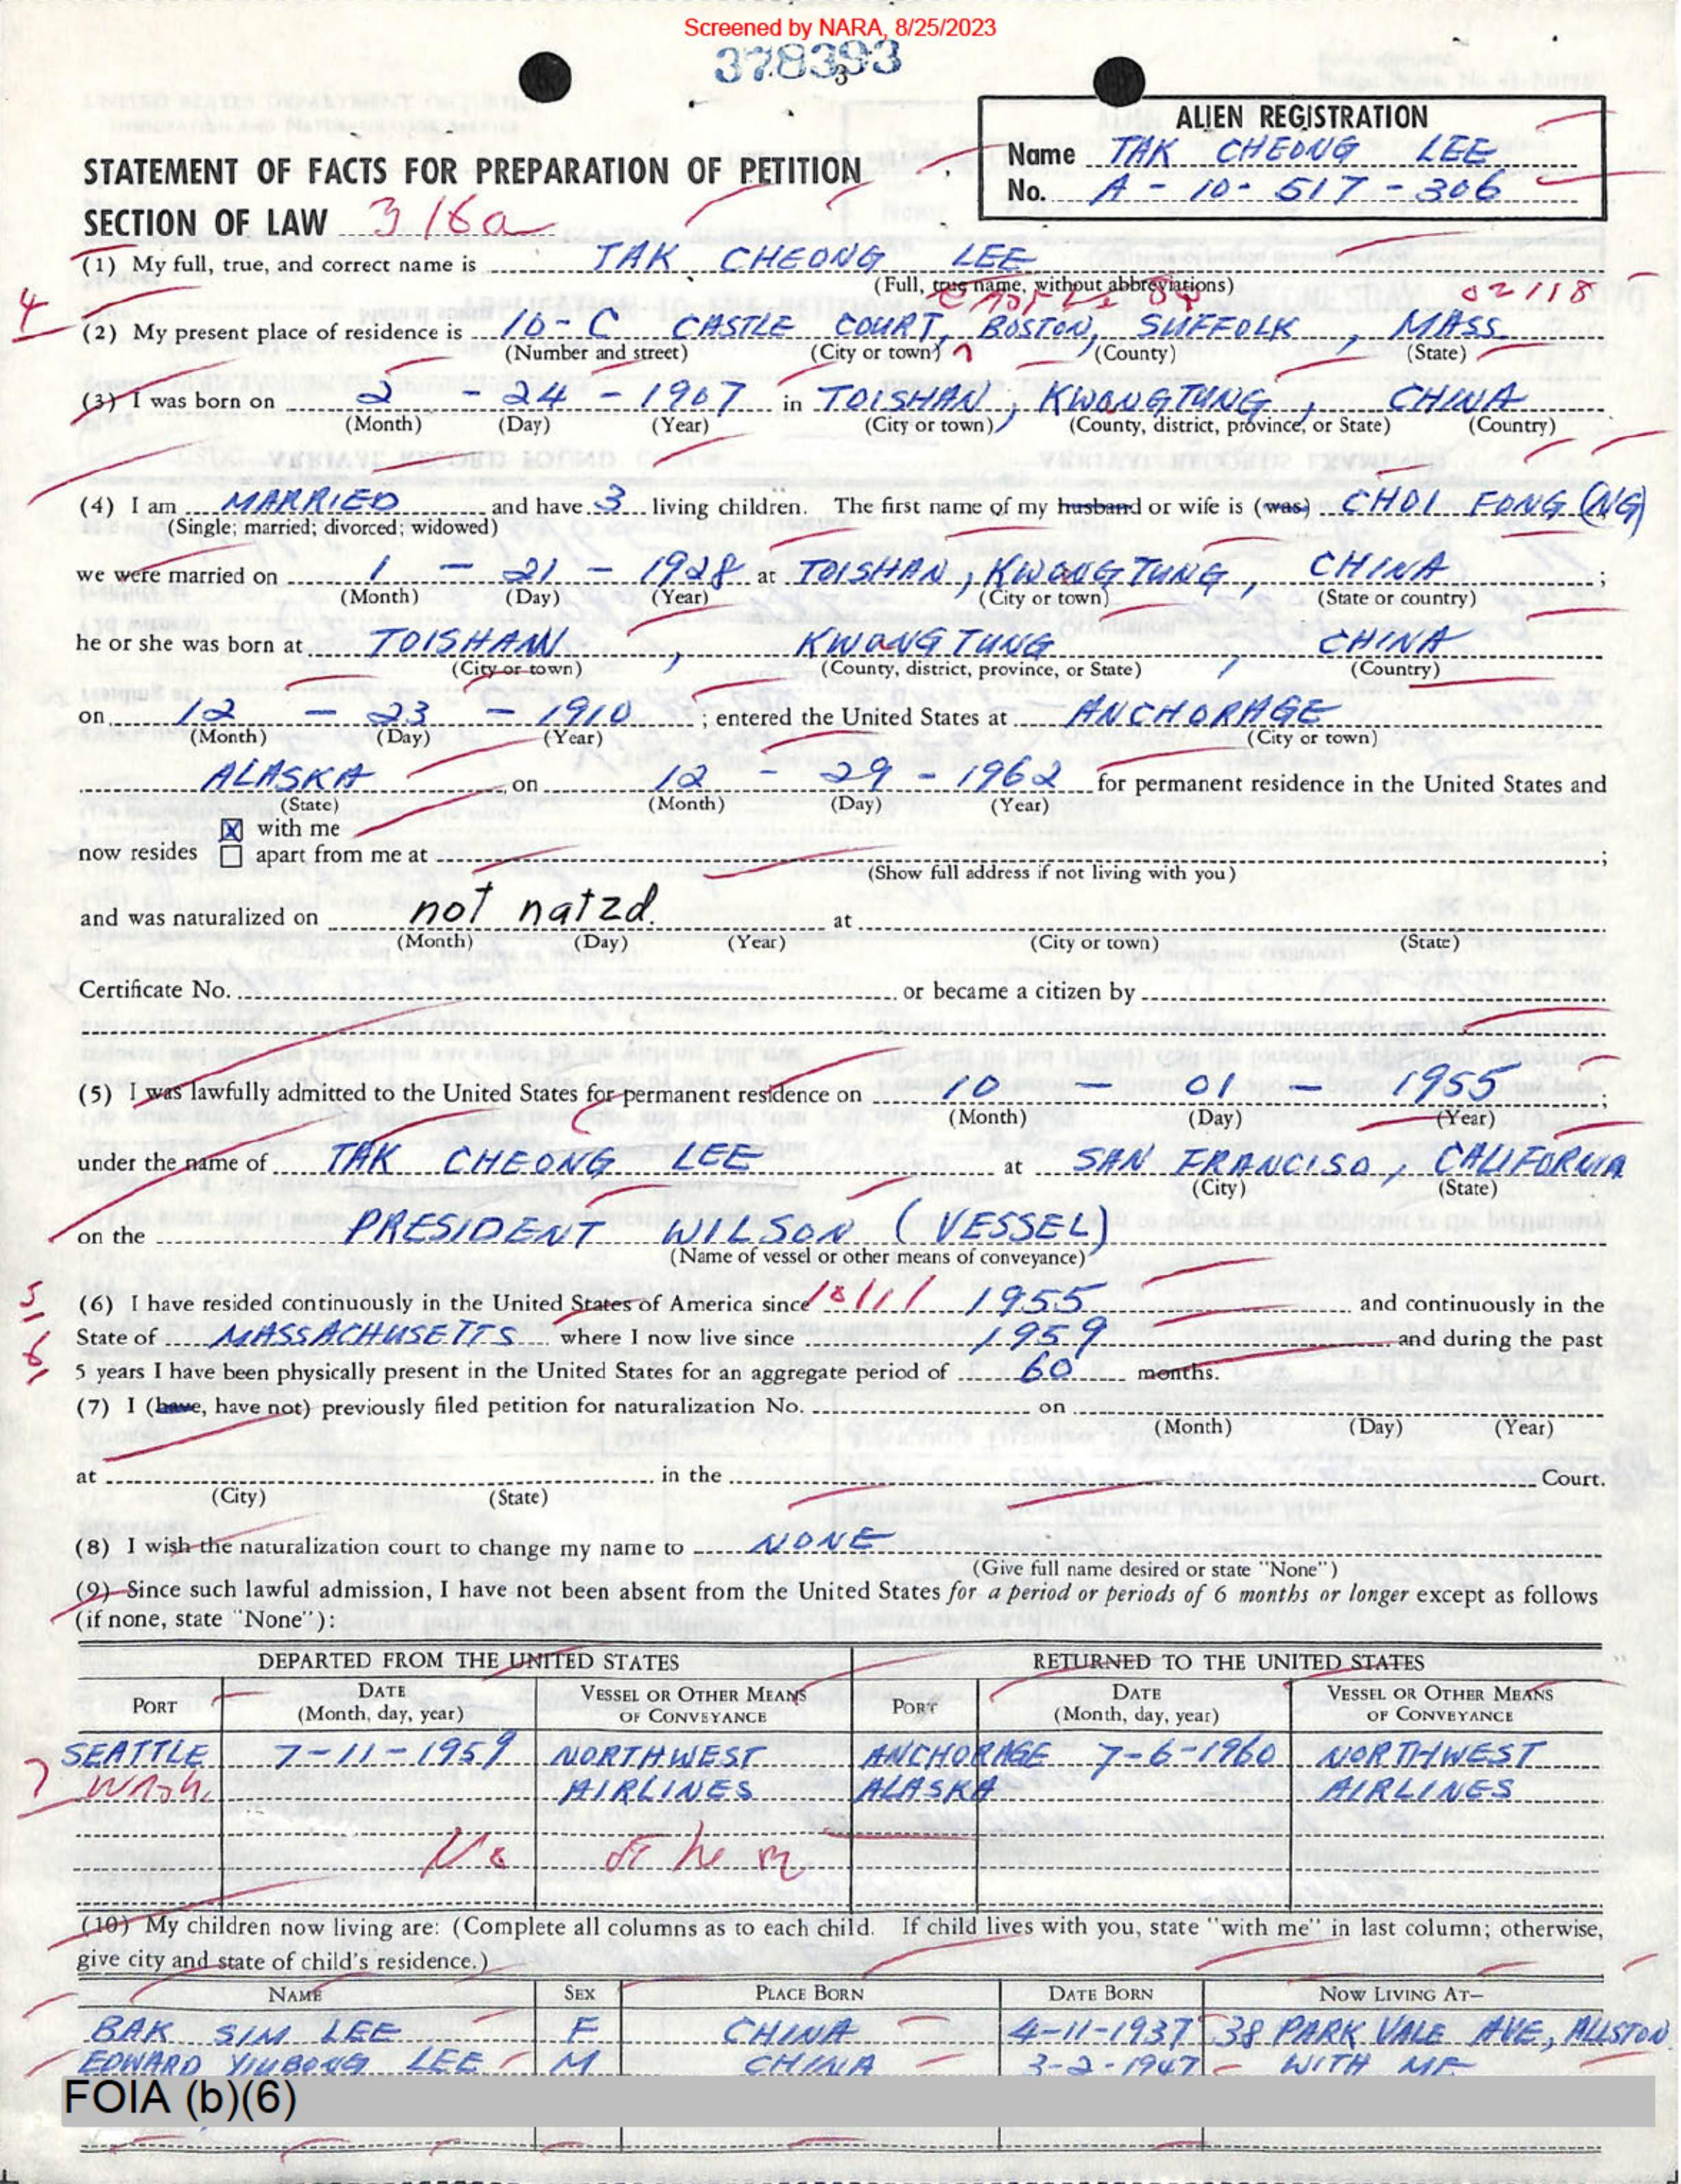 Screened by NARA, 8/25/2023
378393
ALIEN REGISTRATION
Name TAK CHEONG LEE
No. A - 10 - 517 - 306
STATEMENT OF FACTS FOR PREPARATION OF PETITION
SECTION OF LAW 316a
(1) My full, true, and correct name is TAK CHEONG LEE
(Full, true name, without abbreviations)
02118
4
(2) My present place of residence is 16-C CASTLE COURT, BOSTON, SUFFOLK, MASS
(Number and street) (City or town) (County) (State)
(3) I was born on 2 - 24 - 1907 in TOISHAN, KWANGTUNG, CHINA
(Month) (Day) (Year) (City or town) (County, district, province, or State) (Country)
(4) I am MARRIED and have 3 living children. The first name of my husband or wife is (was) CHOI FONG (NG)
(Single; married; divorced; widowed)
we were married on 1 - 21 - 1928 at TOISHAN, KWANGTUNG, CHINA ;
(Month) (Day) (Year) (City or town) (State or country)
he or she was born at TOISHAN, KWANGTUNG, CHINA
(City or town) (County, district, province, or State) (Country)
on 12 - 23 - 1910 ; entered the United States at ANCHORAGE
(Month) (Day) (Year) (City or town)
ALASKA, on 12 - 29 - 1962 for permanent residence in the United States and
(State) (Month) (Day) (Year)
X with me
now resides apart from me at ;
(Show full address if not living with you)
and was naturalized on not natzd. at
(Month) (Day) (Year) (City or town) (State)
Certificate No. or became a citizen by
(5) I was lawfully admitted to the United States for permanent residence on 10 - 01 - 1955 ;
(Month) (Day) (Year)
under the name of TAK CHEONG LEE at SAN FRANCISO, CALIFORNIA
(City) (State)
on the PRESIDENT WILSON (VESSEL)
(Name of vessel or other means of conveyance)
5
(6) I have resided continuously in the United States of America since 10/1/ 1955 and continuously in the
State of MASSACHUSETTS where I now live since 1959 and during the past
6
5 years I have been physically present in the United States for an aggregate period of 60 months.
(7) I (have, have not) previously filed petition for naturalization No. on
(Month) (Day) (Year)
at in the Court.
(City) (State)
(8) I wish the naturalization court to change my name to NONE
(Give full name desired or state "None")
(9) Since such lawful admission, I have not been absent from the United States for a period or periods of 6 months or longer except as follows
(if none, state "None"):
DEPARTED FROM THE UNITED STATES RETURNED TO THE UNITED STATES
PORT DATE (Month, day, year) VESSEL OR OTHER MEANS OF CONVEYANCE PORT DATE (Month, day, year) VESSEL OR OTHER MEANS OF CONVEYANCE
SEATTLE 7-11-1959 NORTHWEST ANCHORAGE 7-6-1960 NORTHWEST
7 Wash. AIRLINES ALASKA AIRLINES
No other
(10) My children now living are: (Complete all columns as to each child. If child lives with you, state "with me" in last column; otherwise,
give city and state of child's residence.)
NAME SEX PLACE BORN DATE BORN NOW LIVING AT—
BAK SIM LEE F CHINA 4-11-1937 38 PARK VALE AVE, ALLSTON
EDWARD YIUBONG LEE M CHINA 3-2-1947 WITH ME
FOIA (b)(6)